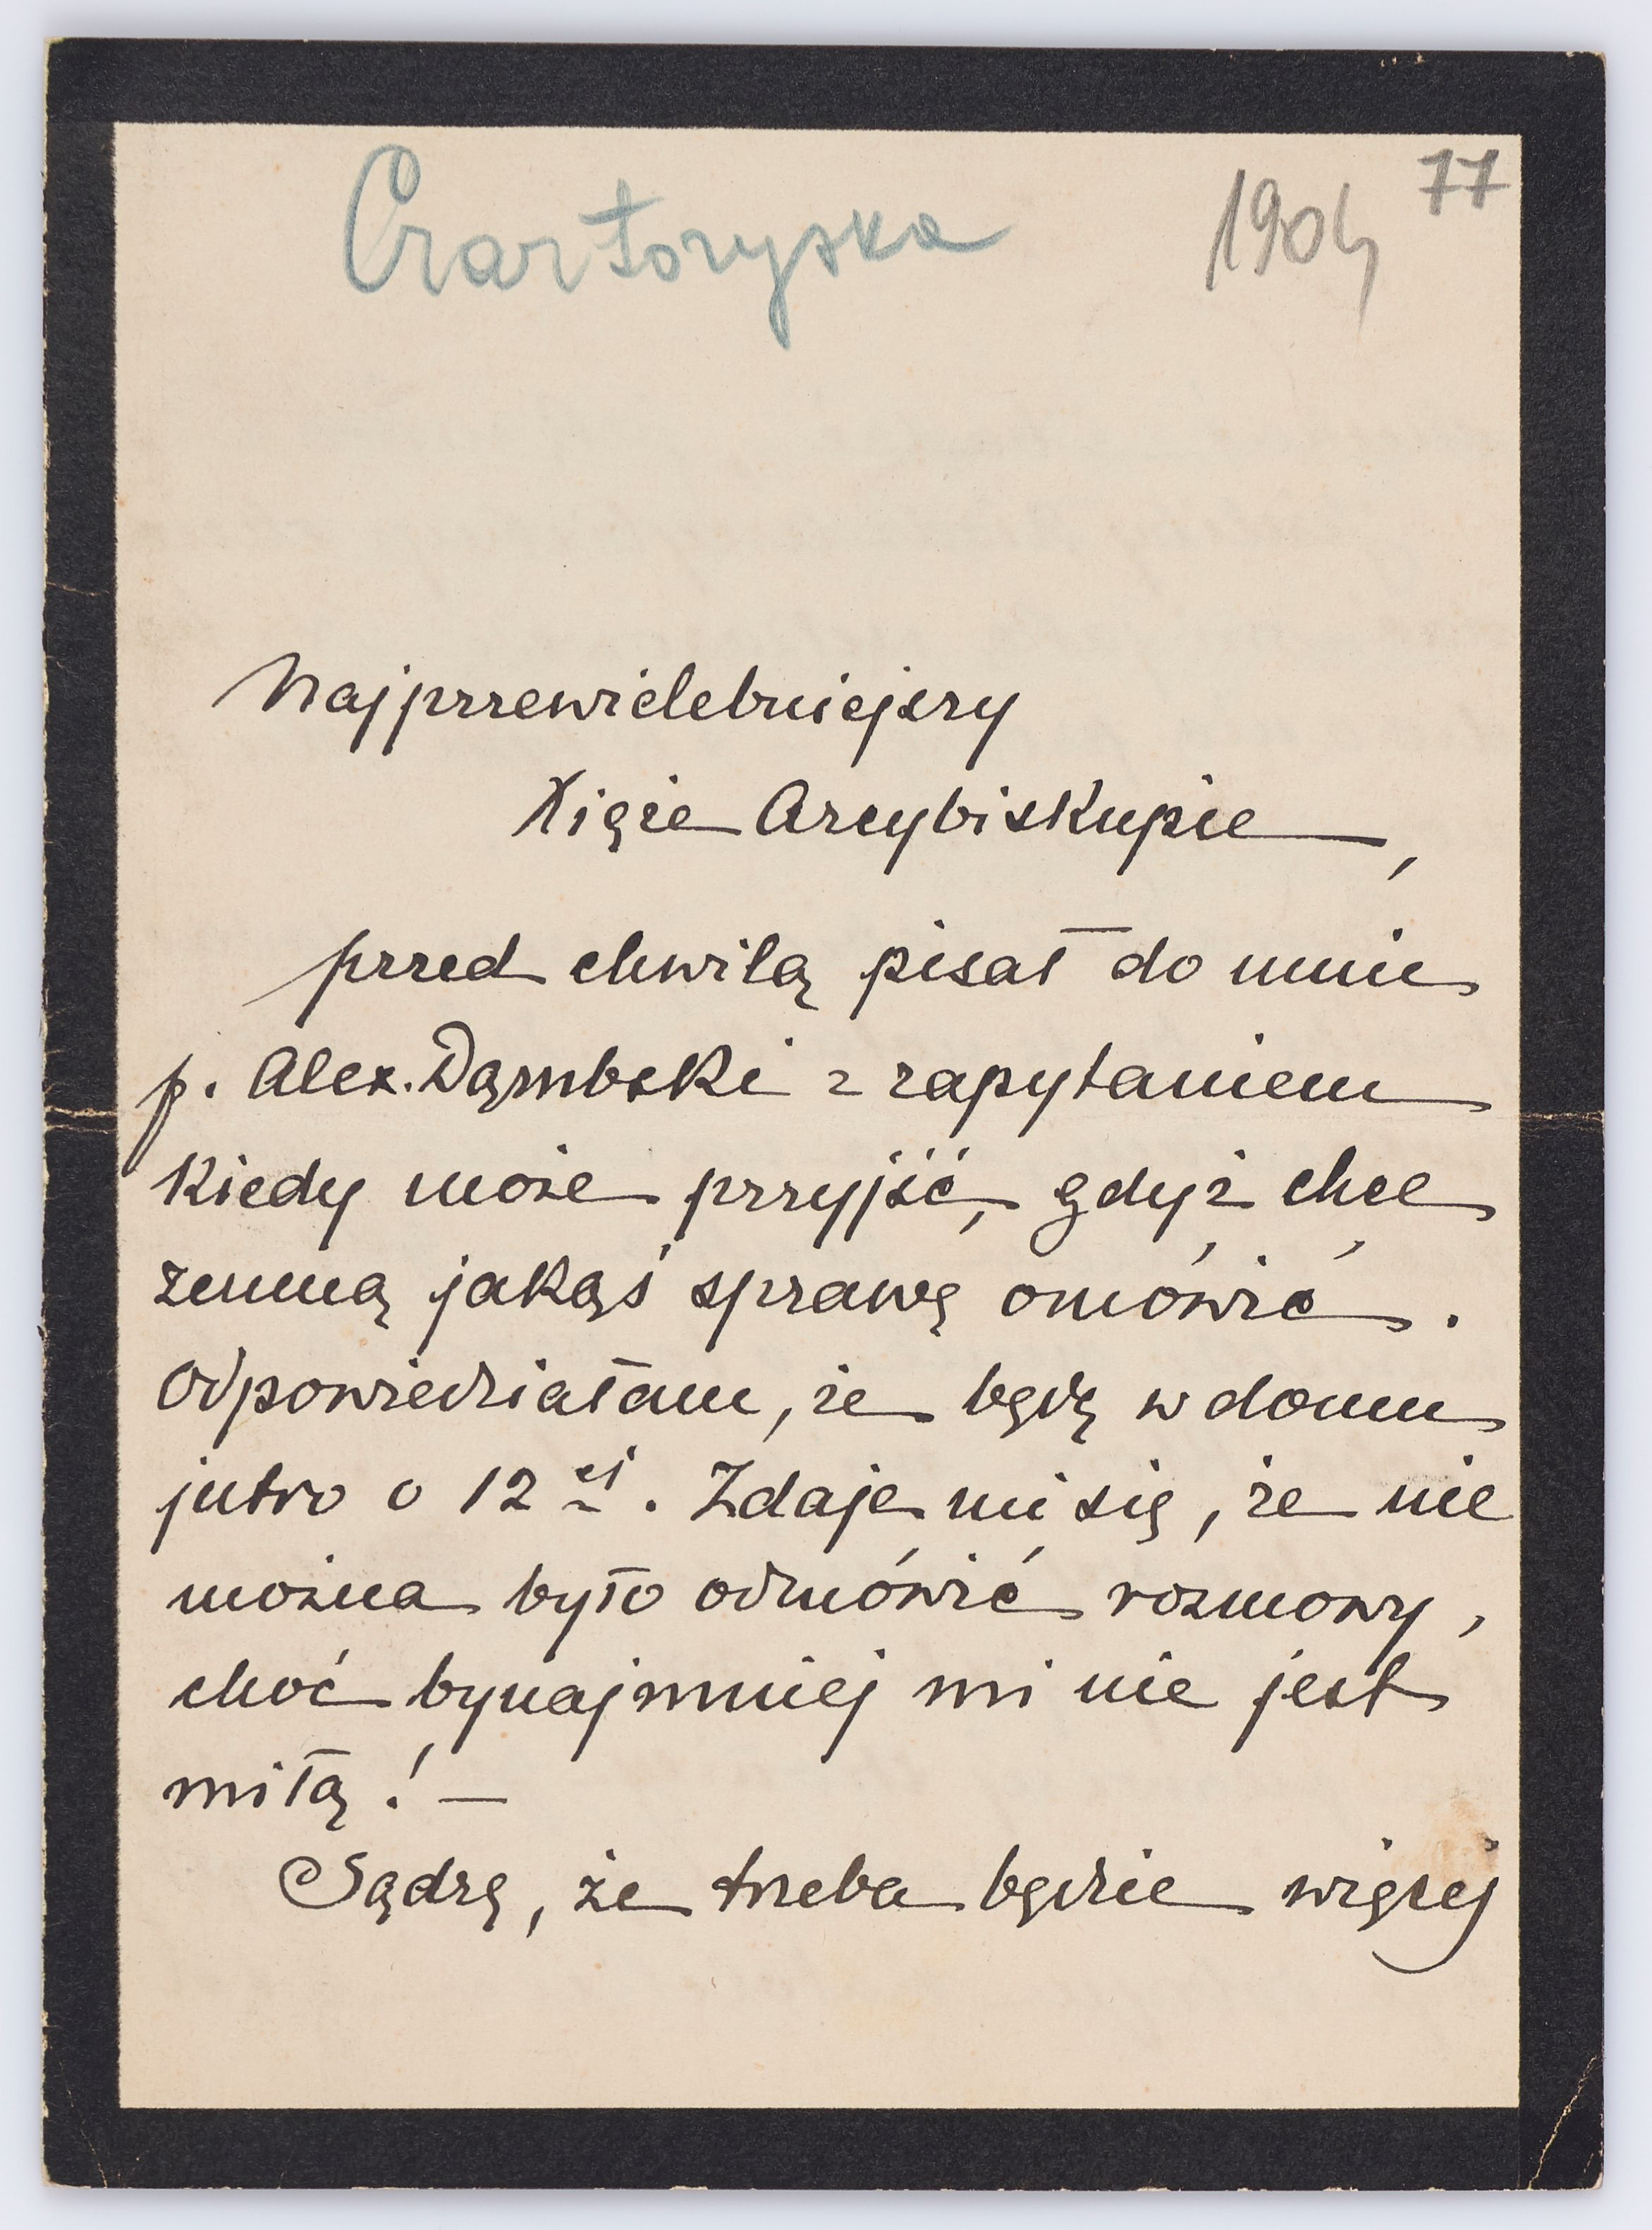 Czartoryska 1904 77
Najprzewielebniejszy
Xięże Arcybiskupie,
przed chwilą pisał do mnie
p. Alex. Dąmbski z zapytaniem
kiedy może przyjść, gdyż chce
zemną jakąś sprawę omówić.
Odpowiedziałam, że będę w domu
jutro o 12ej. Zdaje mi się, że nie
można było odmówić rozmowy,
choć bynajmniej mi nie jest
miłą! —
Sądzę, że trzeba będzie więcej